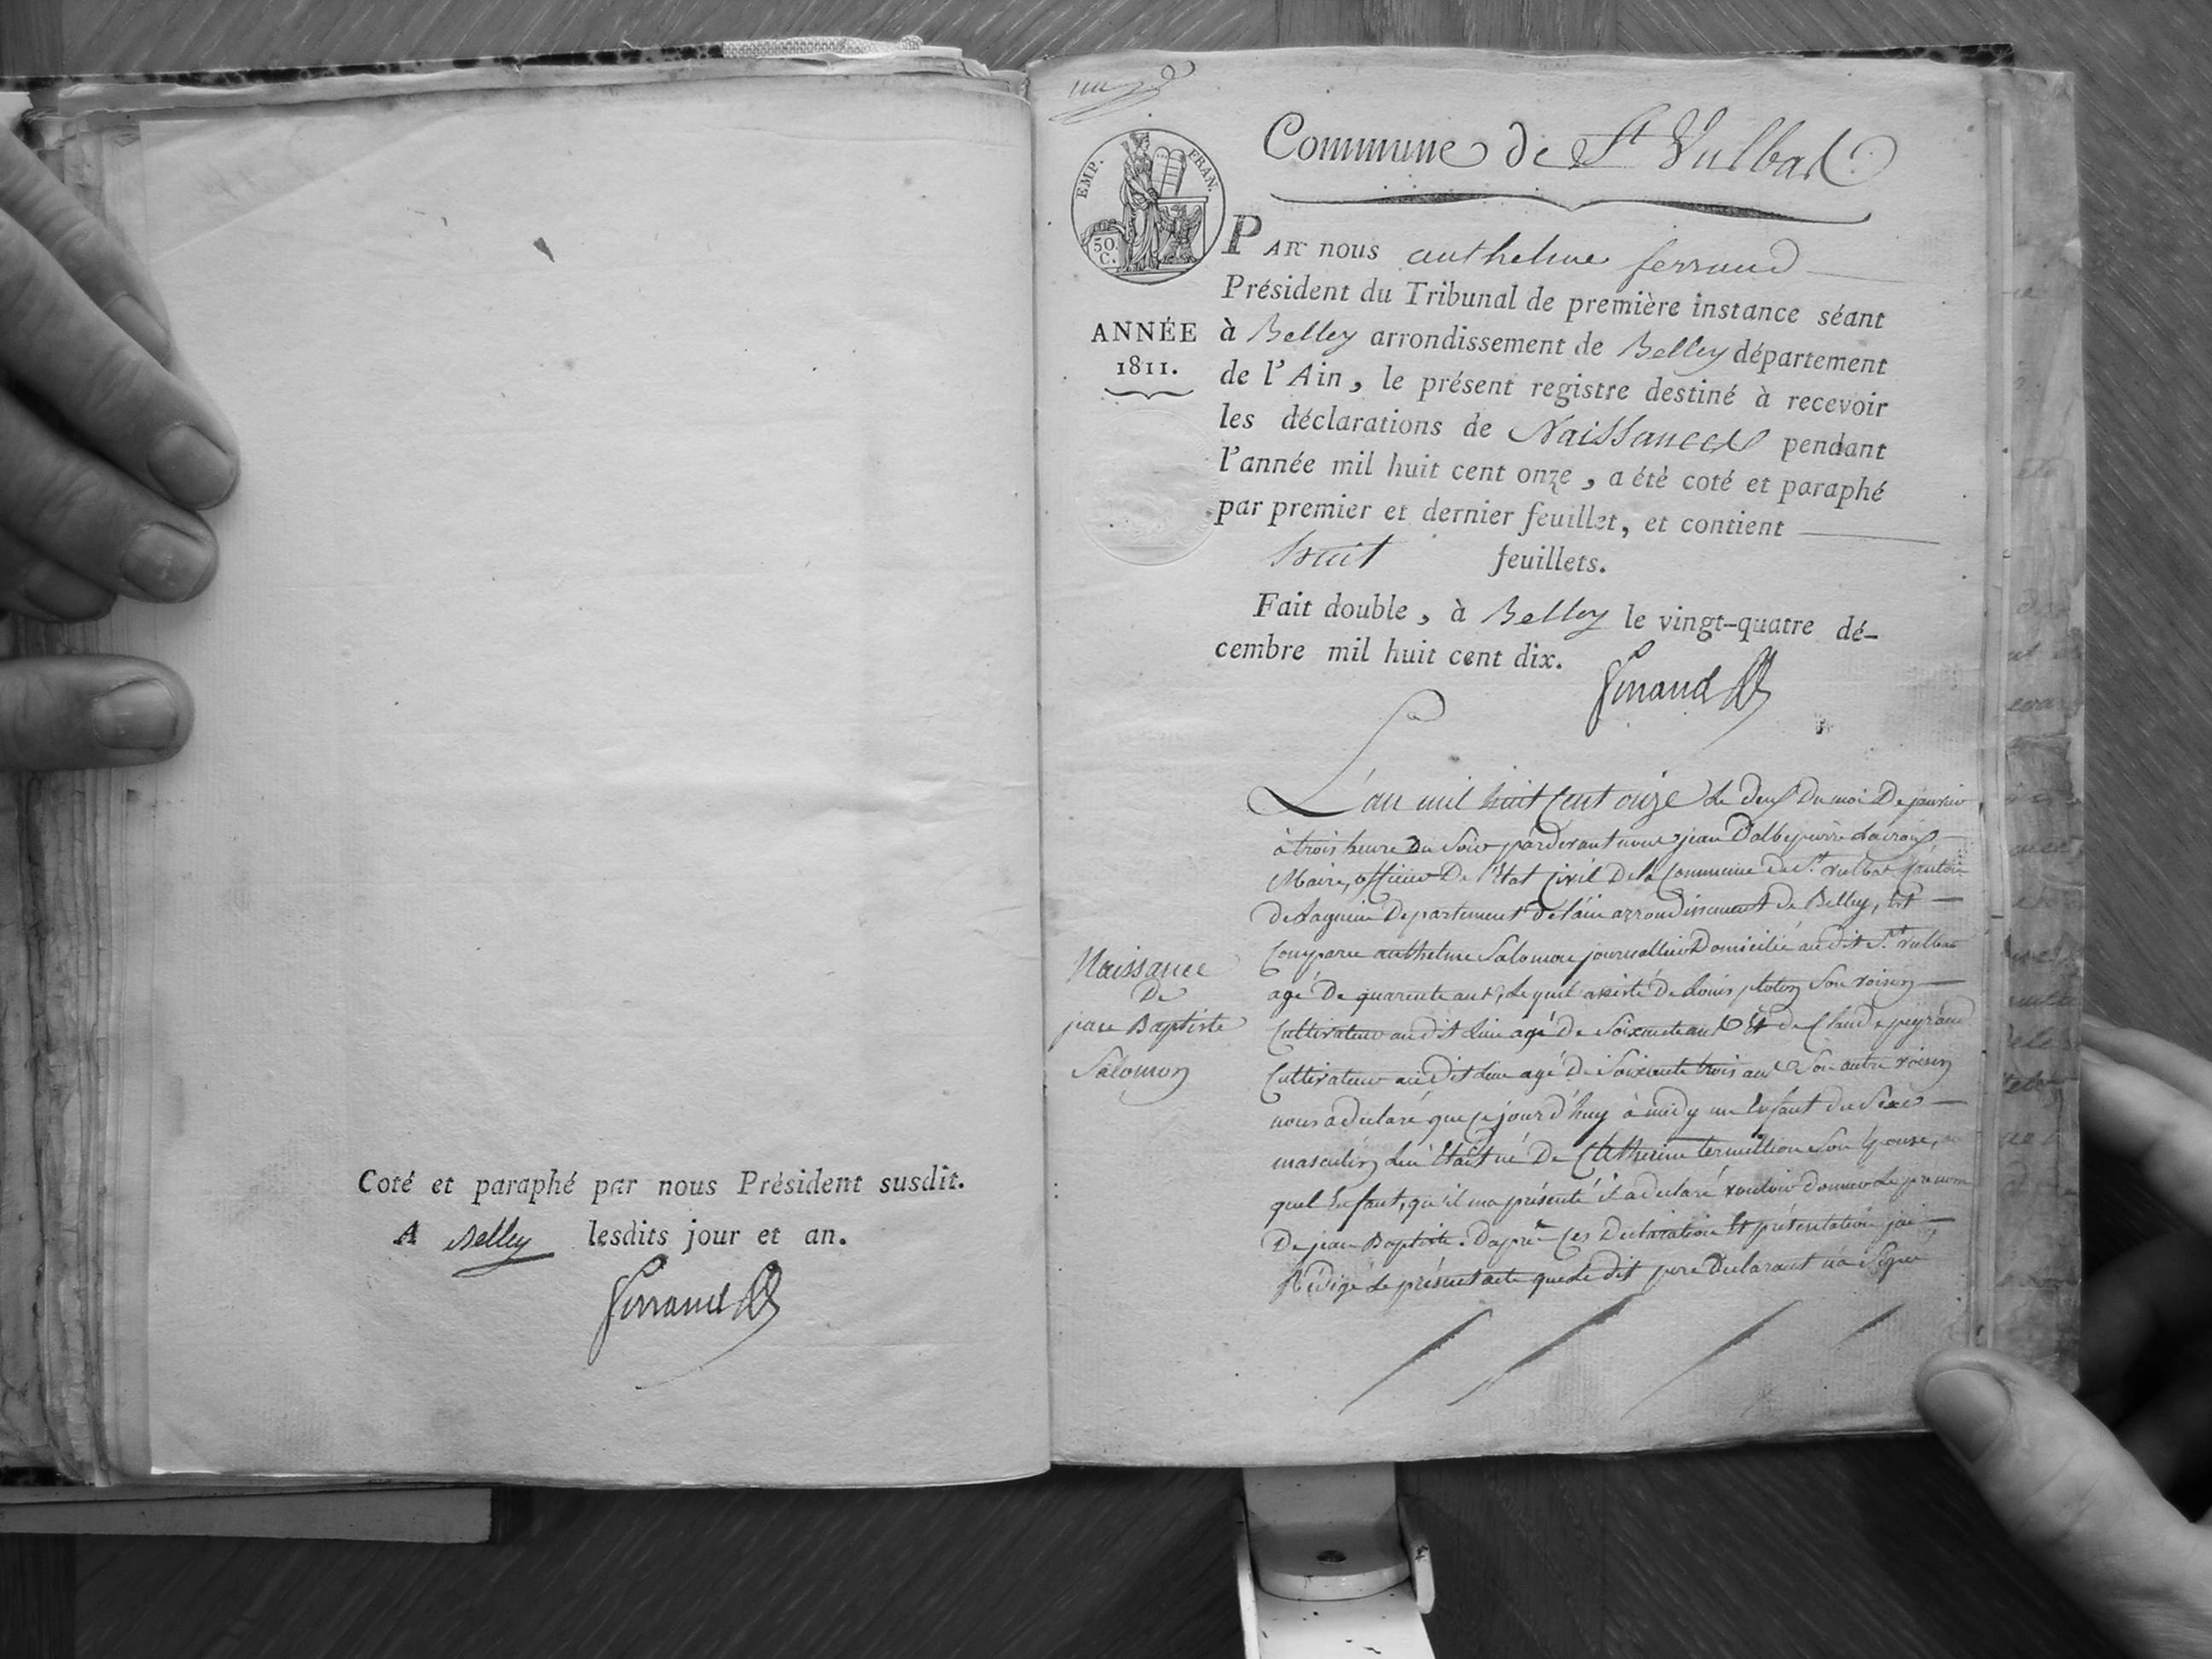 Coté et paraphé par nous Président susdit.
A Belley lesdits jour et an.
Ferrand
Commune de St Vulbas
EMP. FRAN.
50. C.
ANNÉE
1811.
PAR nous anthelme ferrand
Président du Tribunal de première instance séant
à Belley arrondissement de Belley département
de l'Ain, le présent registre destiné à recevoir
les déclarations de Naissances pendant
l'année mil huit cent onze, a été coté et paraphé
par premier et dernier feuillet, et contient
huit feuillets.
Fait double, à Belley le vingt-quatre dé-
cembre mil huit cent dix.
Ferrand
Naissance
De
jean Baptiste
Salomon
L'an mil huit Cent onze Le deux Du moi De janvier
à trois heure Du Soir pardevant nous jean D'alby
Maire, officier De l'Etat Civil De la Commune de St. vulbas Canton
de Lagnieu Departement De l'ain arrondissement de Belley, Est
Comparu anthelme Salomon journallier Domicilié au dit St. vulbas
agé De quarente ans, Lequel assisté De Louis ploton Son voisin
Cultivateur au dit Lieu agé De Soixante ans Et de Claude peyraud
Cultivateur au Dit Lieu agé De Soixante trois ans Son autre voisin
nous a declaré que Ce jour d'huy à midy un Enfant du Sexe
masculin Lui Etait né De Catherine termillion Son Epouse,
quel Enfant, qu'il ma présenté il a declaré vouloir donner Le prenom
De jean Baptiste. D'après Ces Declaration Et présentation j'ai
Rédigé Le présent acte que Le dit pere Declarant n'a Signé